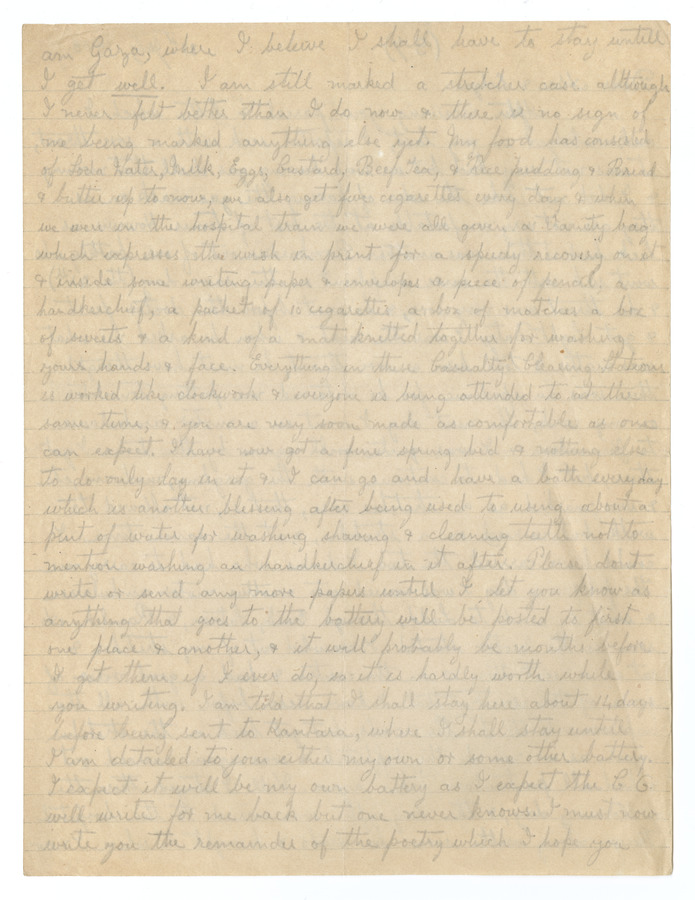 am Gaza, where I beleive I shall have to stay untill
I get well. I am still marked a stretcher case although
I never felt better than I do now & there is no sign of
me being marked anything else yet. My food has consisted
of Soda Water, Milk, Eggs, Custard, Beef Tea, & Rice pudding & Bread
& butter up to now, we also get five cigarettes every day & when
we were in the hospital train we were all given a Vanity bag
which expresses the wish in print for a speedy recovery on it
& inside some writing paper & envelopes a piece of pencil, a
handkerchief, a packet of 10 cigarettes a box of matches a box
of sweets & a kind of a mat knitted together for washing
your hands & face. Everything in these Casualty Clearing Stations
is worked like clockwork & everyone is being attended to at the
same time, & you are very soon made as comfortable as one
can expect. I have now got a fine spring bed & nothing else
to do only lay in it & I can go and have a bath everyday
which is another blessing after being used to using about a
pint of water for washing shaving & cleaning teeth not to
mention washing an handkerchief in it after. Please dont
write or send any more papers untill I let you know as
anything that goes to the battery will be posted to first
one place & another, & it will probably be months before
I get them if I ever do, so it is hardly worth while
you writing. I am told that I shall stay here about 14 days
before being sent to Kantara, where I shall stay untill
I am detailed to join either my own or some other battery.
I expect it will be my own battery as I expect the C O
will write for me back but one never knows. I must now
write you the remainder of the poetry which I hope you